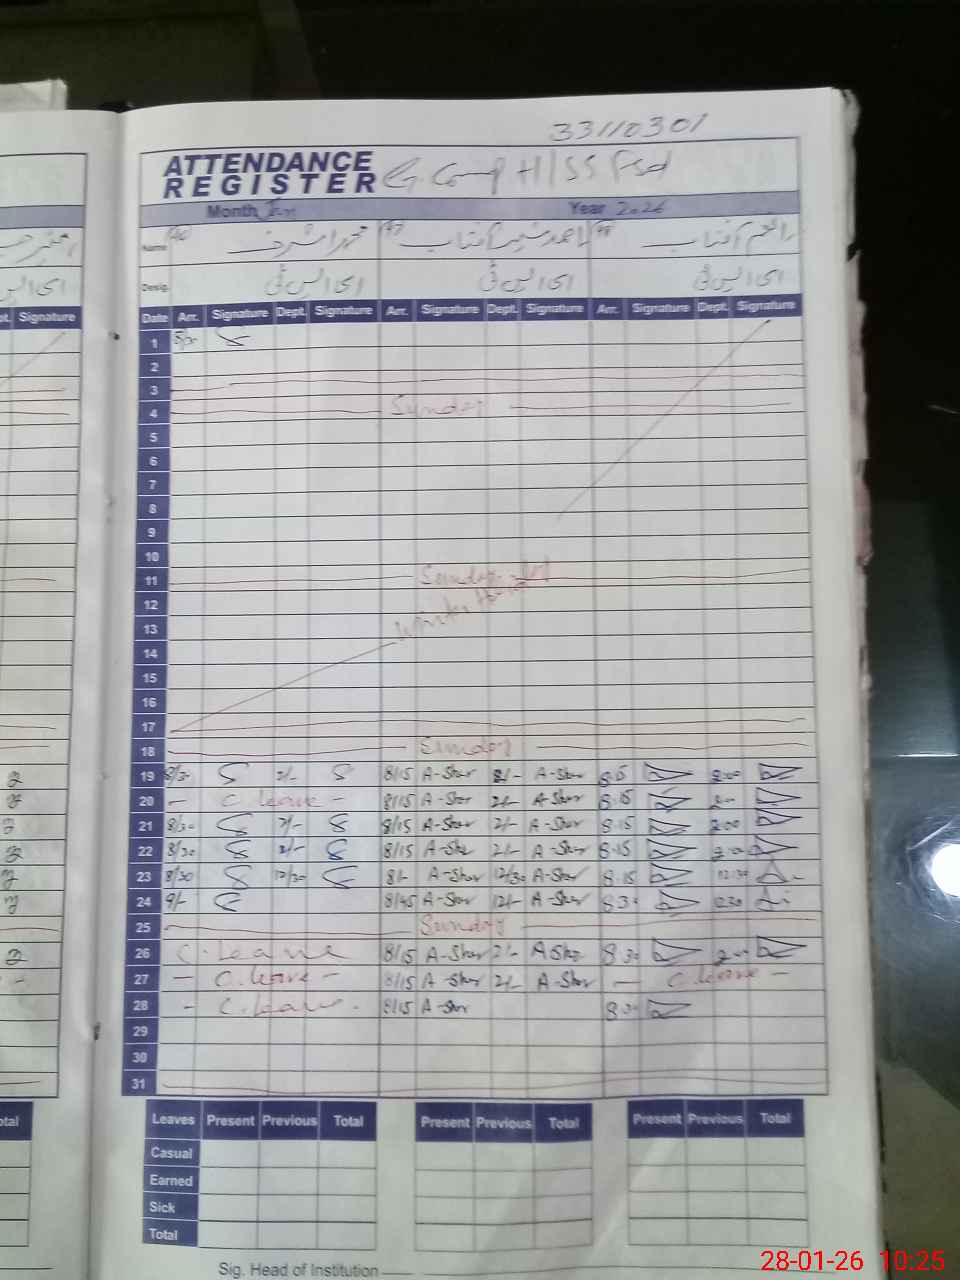 33110301
ATTENDANCE
REGISTER G. Comp H/SS Fsd
Month Jan Year 2026
Name 46 محمد اشرف 47 احمد شہیر آفتاب 48 راغم آفتاب
Desig. ای ایس ٹی ای ایس ٹی ای ایس ٹی
ای ایس
pt. Signature
Date Arr. Signature Dept. Signature Arr. Signature Dept. Signature Arr. Signature Dept. Signature
1
2
3
4 Sunday
5
6
7
8
9
10
11 Sunday
12 winter
13
14
15
16
17
18 Sunday
19 8/30 2/- 8/15 A-Shar 2/- A-Shar 8.15 2.00
20 - C. leave - 8/15 A-Shar 2/- A-Shar 8.15 2.00
21 8/30 2/- 8/15 A-Shar 2/- A-Shar 8.15 2.00
22 8/30 2/- 8/15 A-Shar 2/- A-Shar 8.15 2.00
23 8/30 12/30 8/- A-Shar 12/30 A-Shar 8.15 12.30
24 9/- 8/45 A-Shar 12/- A-Shar 8.30 12.30
25 Sunday
26 C. Leave 8/15 A-Shar 2/- A-Shar 8.30 2.00
27 - C. leave - 8/15 A-Shar 2/- A-Shar - C. leave -
28 - C. leave - 8/15 A-Shar 8.30
29
30
31
otal
Leaves Present Previous Total Present Previous Total Present Previous Total
Casual
Earned
Sick
Total
Sig. Head of Institution
28-01-26 10:25